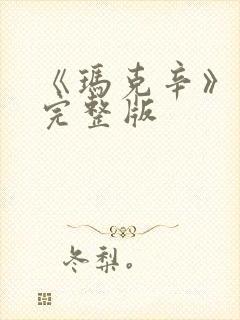 《瑪克辛》
完整版
冬梨。